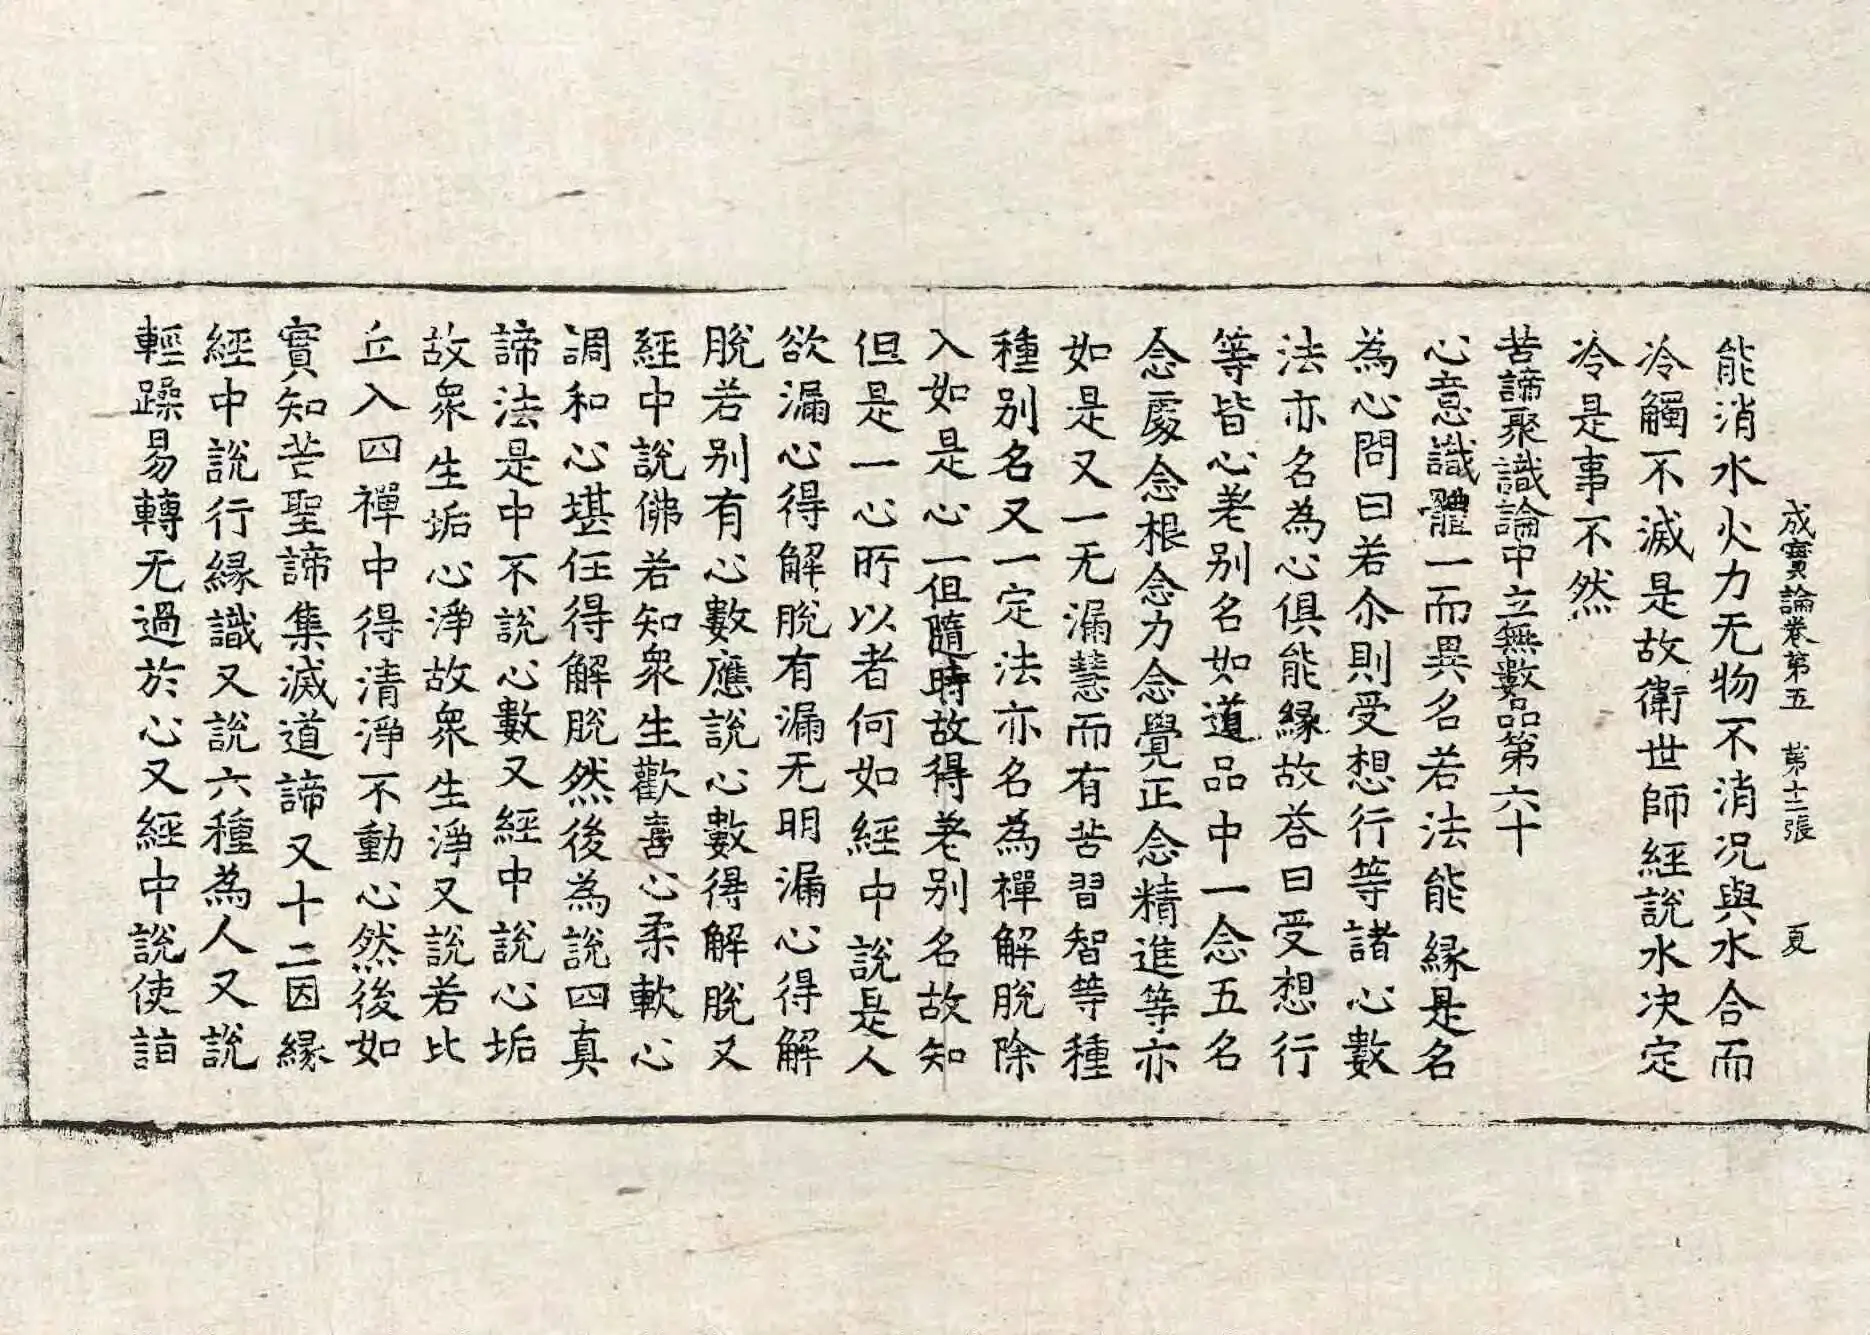 成實論卷第五 第十二張 夏
能消水火力无物不消况與水合而
冷觸不滅是故衛世師經說水决定
冷是事不然
苦諦聚識論中立無數品第六十
心意識體一而異名若法能緣是名
為心問曰若尒則受想行等諸心數
法亦名為心俱能緣故荅曰受想行
等皆心差别名如道品中一念五名
念處念根念力念覺正念精進等亦
如是又一无漏慧而有苦習智等種
種别名又一定法亦名為禪解脫除
入如是心一但隨時故得差别名故知
但是一心所以者何如經中說是人
欲漏心得解脫有漏无明漏心得解
脫若别有心數應說心數得解脫又
經中說佛若知衆生歡喜心柔軟心
調和心堪任得解脫然後為說四真
諦法是中不說心數又經中說心垢
故衆生垢心淨故衆生淨又說若比
丘入四禪中得清淨不動心然後如
實知苦聖諦集滅道諦又十二因緣
經中說行緣識又說六種為人又說
輕躁易轉无過於心又經中說使詣